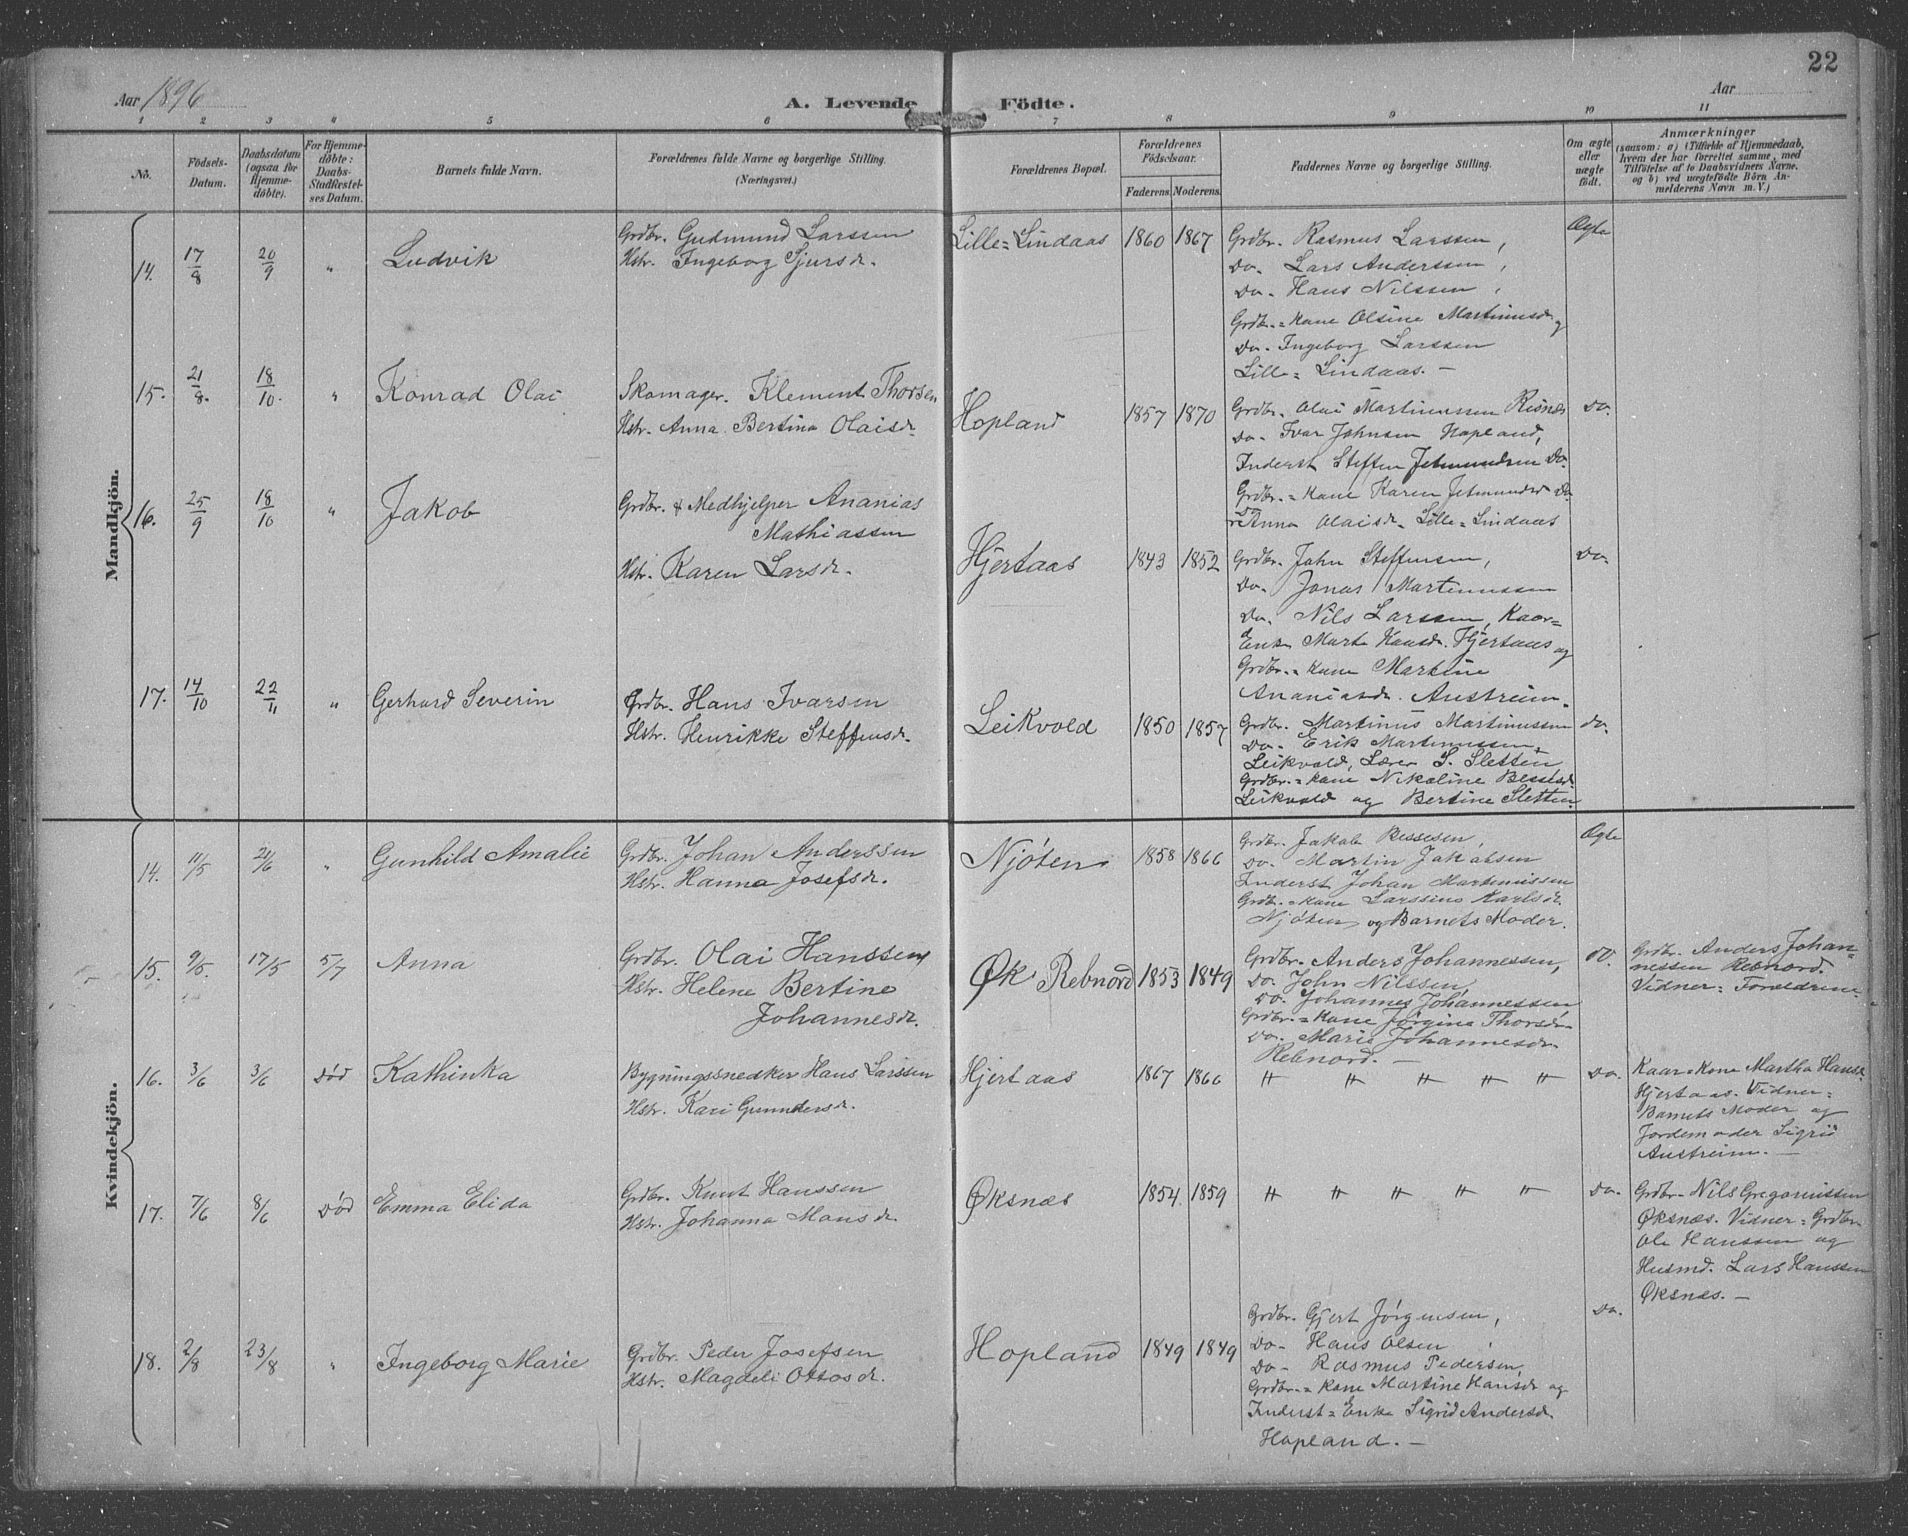 22
Aar 1896
A. Levende Födte.
Aar
1 2 3 4 5 6 7 8 9 10 11
No.
Födsels-Datum.
Daabsdatum (ogsaa for Hjemme-döbte).
For Hjemme-döbte: Daabs-Stadfæstel-ses Datum.
Barnets fulde Navn.
Forældrenes fulde Navne og borgerlige Stilling.
(Næringsvei.)
Forældrenes Bopæl.
Forældrenes Födselsaar.
Faderens. Moderens.
Faddernes Navne og borgerlige Stilling.
Om ægte eller uægte födt.
Anmærkninger
(saasom: a) i Tilfælde af Hjemmedaab,
hvem der har forrettet samme, med
Tilföielse af to Daabsvidners Navne.
og b) ved uægtefödte Börn An-
melderens Navn m. V.)
Mandkjön.
14. 17/8 20/9 " Ludvik
Grdbr. Gudmund Larssen
Hstr. Ingeborg Sjursdr.
Lille-Lindaas 1860 1867
Grdbr. Rasmus Larssen,
Do. Lars Anderssen,
Do. Hans Nilssen,
Grdbr.-Kone Olsine Martinusdr og
Do. Ingeborg Larssen
Lille-Lindaas. —
Ægte
15. 21/8. 18/10. " Konrad Olai
Skomager. Klement Thorsen
Hstr. Anna Bertina Olaisdr.
Hopland 1857 1870
Grdbr. Olai Martinussen Risnæs
Do. Ivar Johnsen Hopland,
Inderst Steffen Jetmundsen Do.
Grdbr.-Kone Karen Jetmundsdr Do.
Anna Olaisdr. Lille-Lindaas
Do.
16. 25/9 18/10 " Jakob
Grdbr. & Medhjelper Ananias
Mathiassen
Hstr. Karen Larsdr.
Hjertaas 1843 1852
Grdbr. John Steffensen,
Do. Jonas Martinussen
Do. Nils Larssen, Kaar-
Enke Marte Hansdr. Hjertaas og
Grdbr.-Kone Martine
Ananiasdr. Austreim.
Do.
17. 14/10 22/11 " Gerhard Severin
Grdbr. Hans Ivarsen
Hstr. Henrikke Steffensdr.
Leikvold 1850 1857
Grdbr. Martinus Martinussen
Do. Erik Martinussen
Leikvold, Lærer S. Sletten
Grdbr.-Kone Nikoline
Leikvold og Bertine Sletten.
Do.
Kvindekjön.
14. 11/5 21/6 " Gunhild Amalie
Grdbr. Johan Anderssen
Hstr. Hanna Josefsdr.
Njøten 1858 1866
Grdbr. Jakob
Do. Martin Jakobsen
Inderst Johan Martinussen
Grdbr.-Kone Larssine Karlsdr.
Njøten og Barnets Moder.
Ægte
15. 9/5. 17/5 5/7 Anna
Grdbr. Olai Hanssen
Hstr. Helene Bertine
Johannesdr.
Øk Rebnord 1853 1849
Grdbr. Anders Johannessen,
Do. John Nilssen,
Do. Johannes Johannessen
Grdbr.-Kone Jørgina Thorsdr
Do. Marie Johannesdr.
Rebnord. —
Do.
Grdbr. Anders Johan-
nessen Rebnord.
Vidner: Forældrene.
16. 3/6 3/6 Død Kathinka
Bygningssnedker Hans Larssen
Hstr. Kari Gunndersdr.
Hjertaas 1867 1866
" " " " "
Do.
Kaar-Kone Martha Hansdr
Hjertaas. Vidner:
Barnets Moder og
Jordemoder Sigrid
Austreim. —
17. 7/6 8/6 Død Emma Elida
Grdbr. Knut Hanssen
Hstr. Johanna Monsdr.
Øksnæs 1854. 1859
" " " " "
Do.
Grdbr. Nils Gregoriussen
Øksnæs. Vidner: Grdbr
Ole Hanssen og
Husmd. Lars Hanssen
Øksnæs. —
18. 2/8 23/8 " Ingeborg Marie
Grdbr. Peder Josefsen
Hstr. Magdeli Ottosdr.
Hopland 1849 1849
Grdbr. Gjert Jørgensen,
Do. Hans Olsen,
Do. Rasmus Pedersen,
Grdbr.-Kone Martine Hansdr og
Inderst-Enke Sigrid Andersdr
Hopland. —
Do.